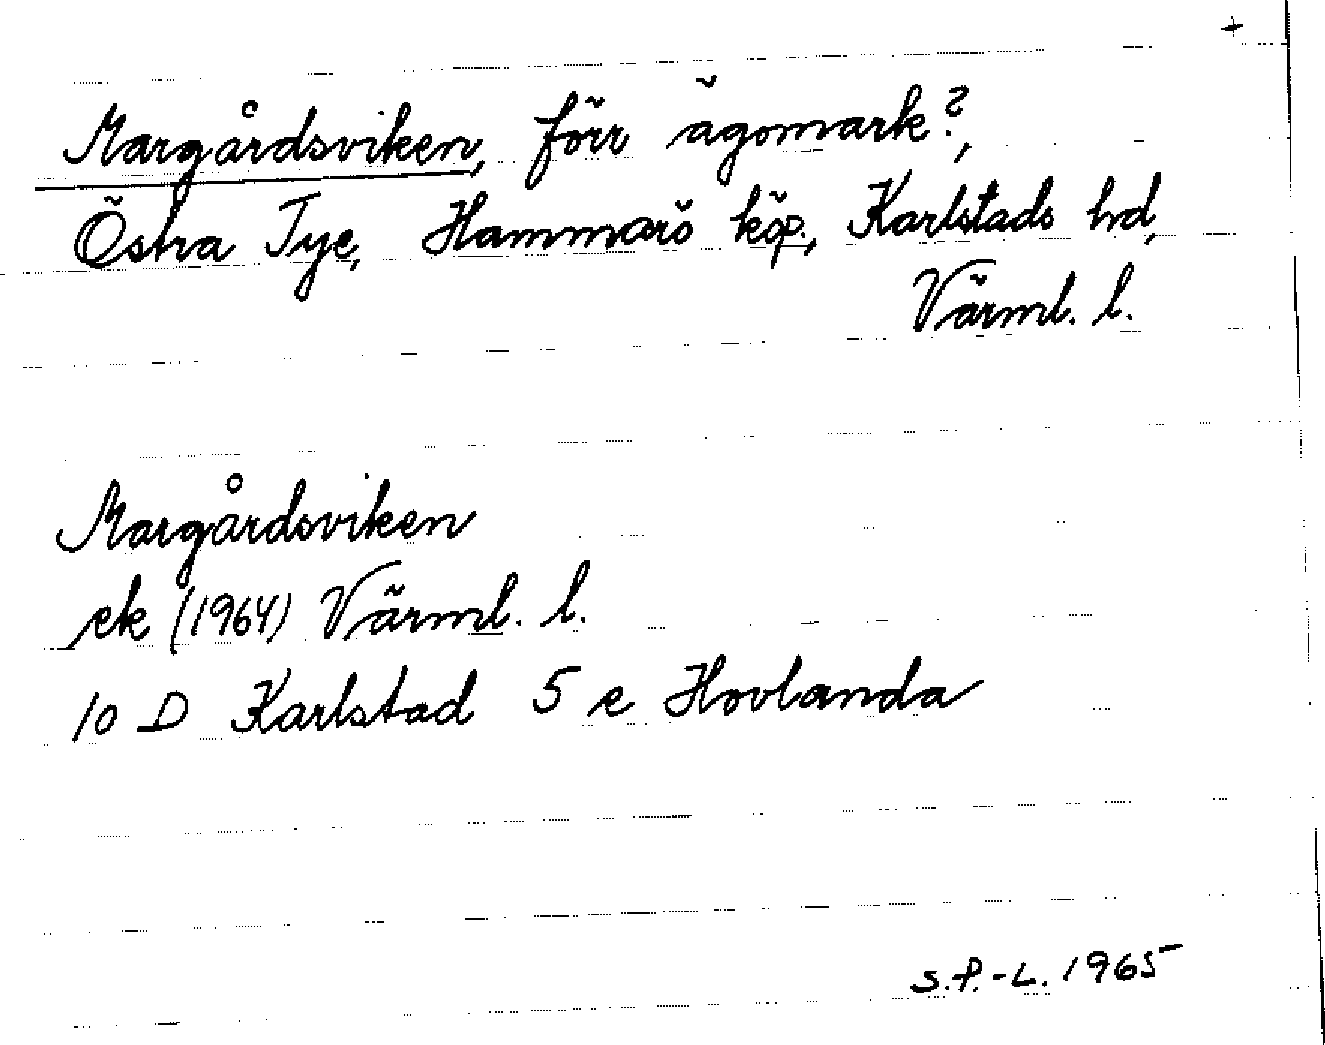 +
Margårdsviken, förr ägomark?,
Östra Tye, Hammarö köp., Karlstads hd,
Värml. l.
Margårdsviken
ek (1964) Värml. l.
10 D Karlstad 5 e Hovlanda
S.P.-L. 1965